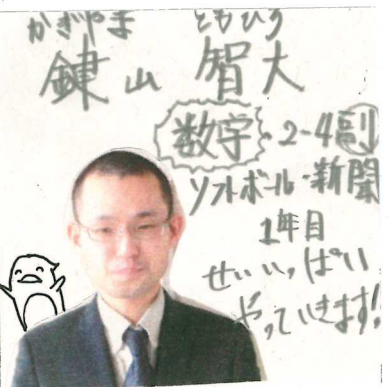 かぎやま ともひろ
鍵山 智大
数学・2-4副
ソフトボール・新聞
1年目
せいいっぱい
やっていきます!